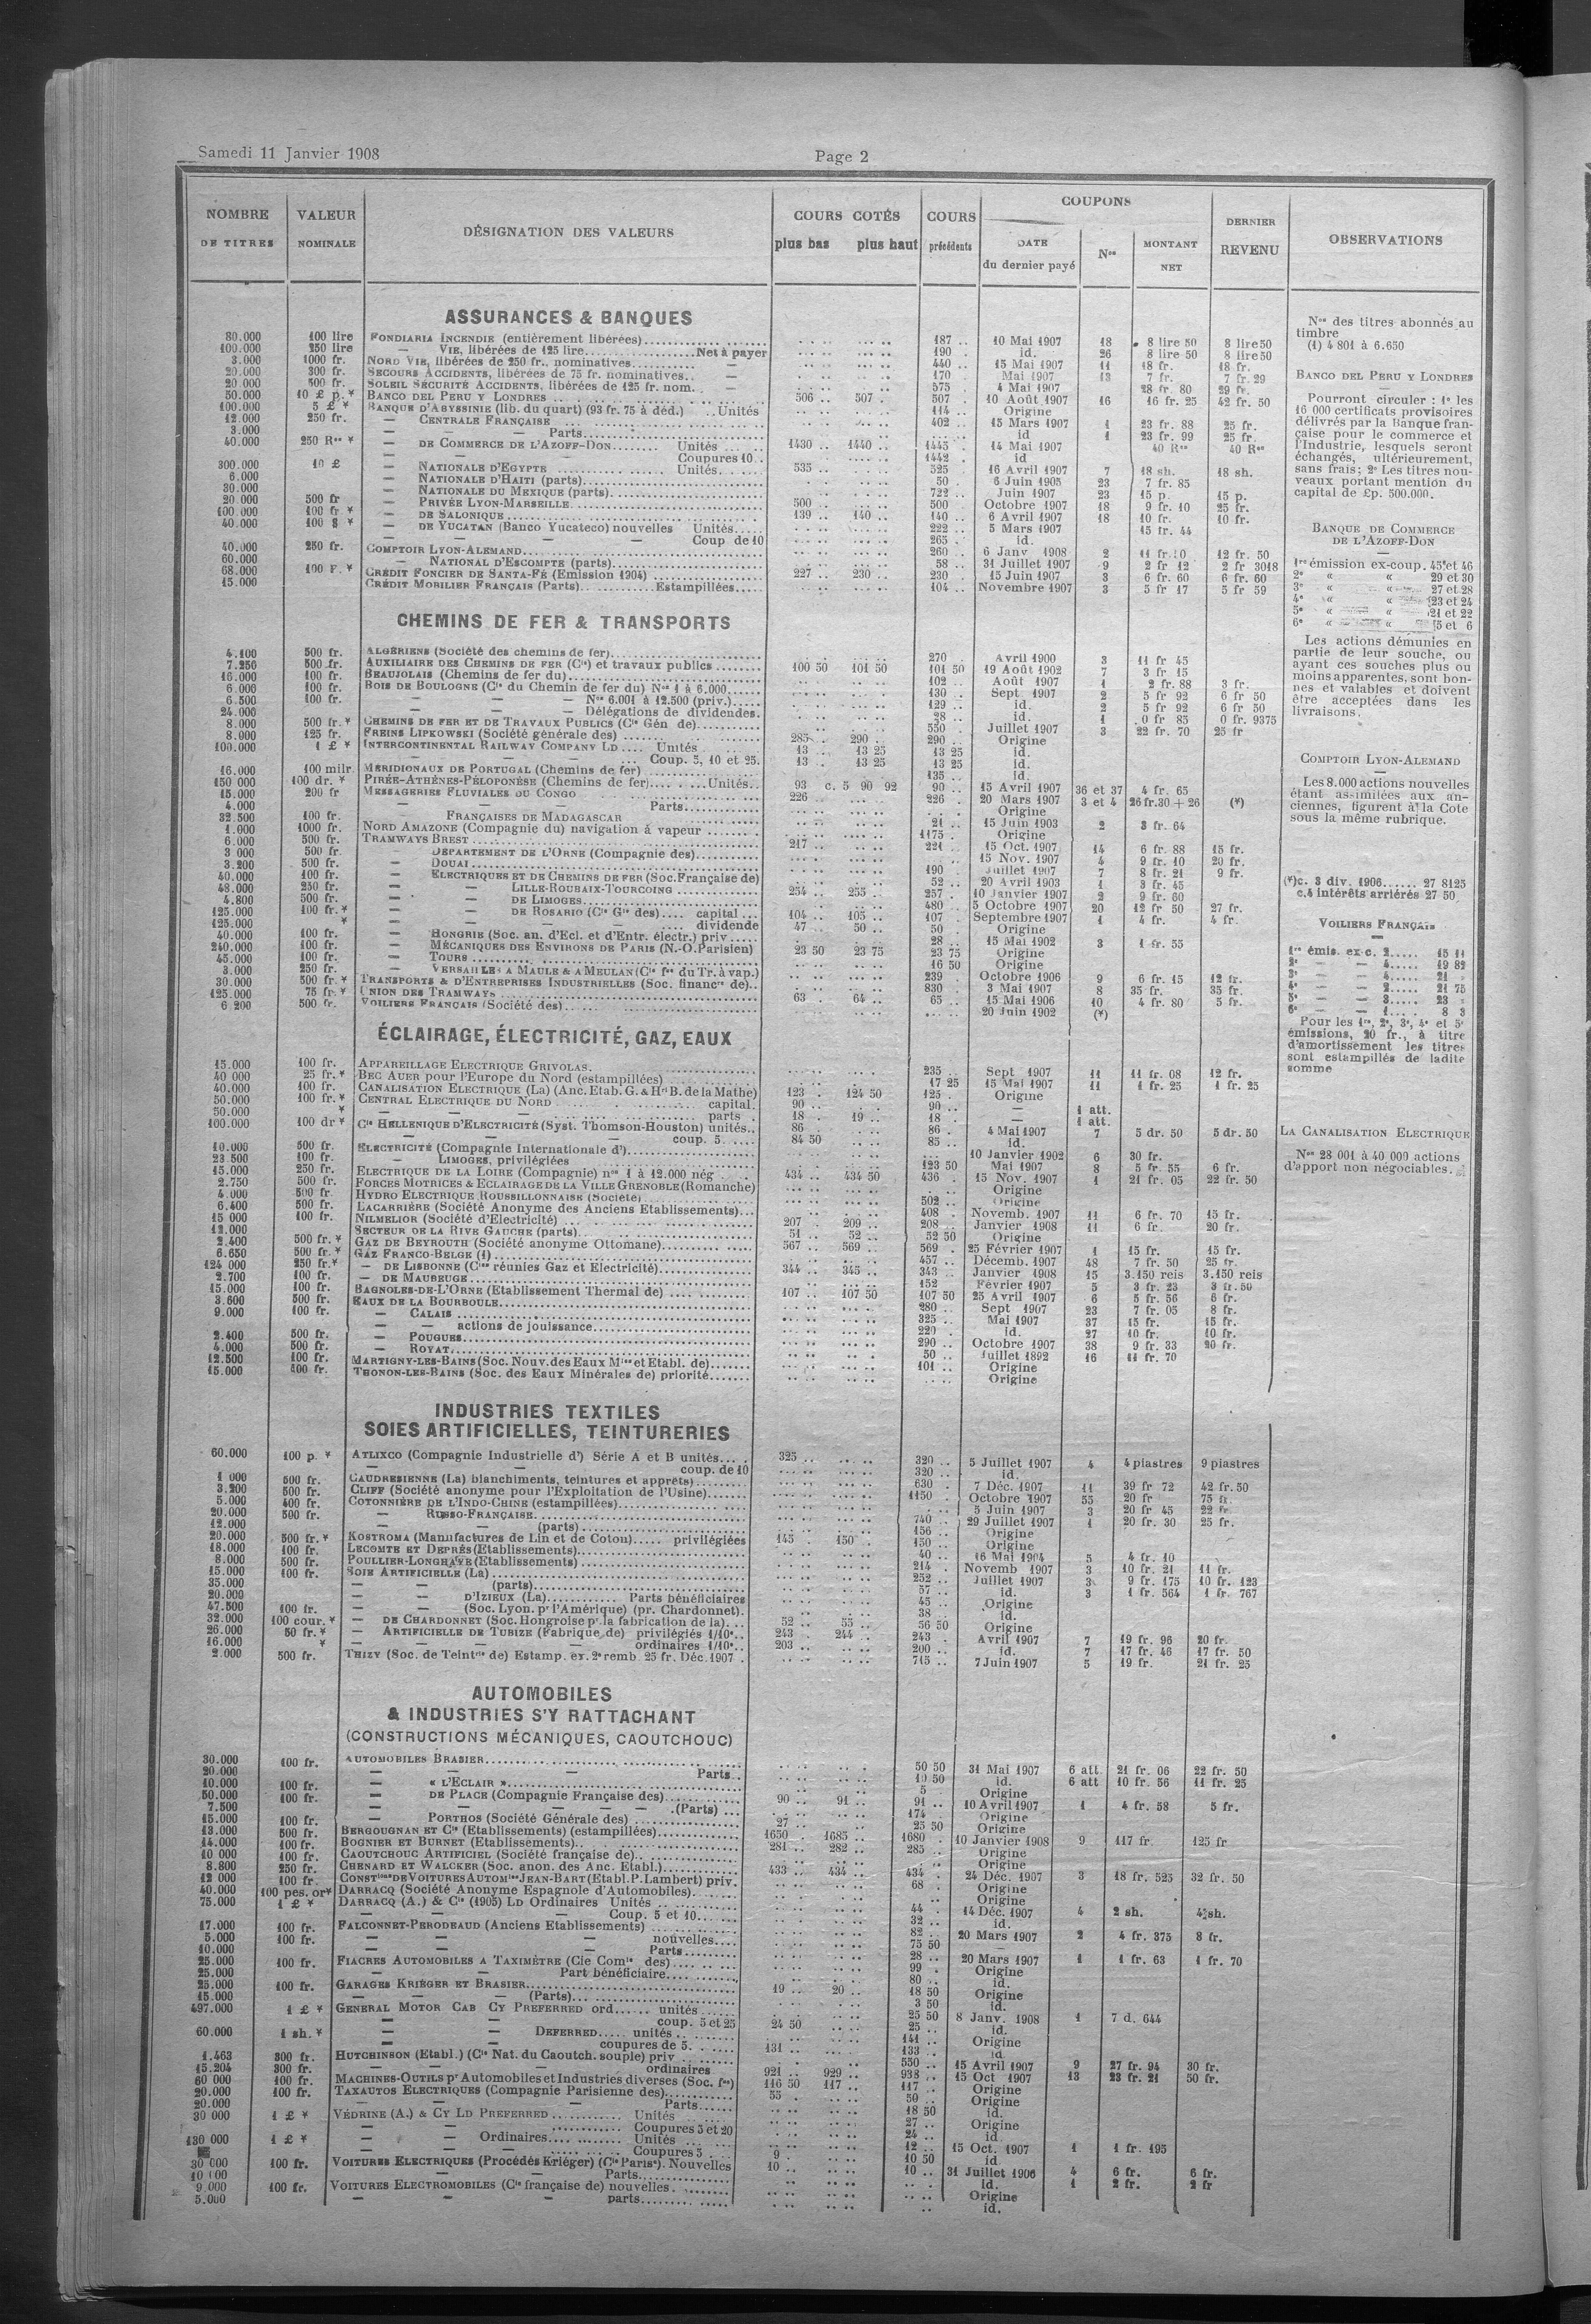 Samedi 11 Janvier 1908
Page 2
NOMBRE DE TITRES
VALEUR NOMINALE
DÉSIGNATION DES VALEURS
COURS COTÉS
plus bas plus haut
COURS précédents
COUPONS
DATE du dernier payé
Nos
MONTANT NET
DERNIER REVENU
OBSERVATIONS
ASSURANCES & BANQUES
80.000 100 lire FONDIARIA INCENDIE (entièrement libérées) 187 .. 10 Mai 1907 18 8 lire 50 8 lire 50
100.000 250 lire — VIE, libérées de 125 lire Net à payer 190 .. id. 26 8 lire 50 8 lire 50
3.000 1000 fr. NORD VIE, libérées de 250 fr., nominatives — 440 .. 15 Mai 1907 11 18 fr. 18 fr.
20.000 300 fr. SECOURS ACCIDENTS, libérées de 75 fr. nominatives — 170 . Mai 1907 13 7 fr. 7 fr. 29
20 000 500 fr. SOLEIL SÉCURITÉ ACCIDENTS, libérées de 125 fr. nom. — 575 .. 4 Mai 1907 28 fr. 80 29 fr.
50.000 10 £ p. * BANCO DEL PERU Y LONDRES 506 .. 507 . 507 . 10 Août 1907 16 16 fr. 25 42 fr. 50
100.000 5 £ * BANQUE D'ABYSSINIE (lib. du quart) (93 fr. 75 à déd.) Unités 114 .. Origine
12.000 250 fr. — CENTRALE FRANÇAISE 402 .. 15 Mars 1907 1 23 fr. 88 25 fr.
3.000 — — Parts id 1 23 fr. 99 25 fr.
40.000 250 Res * — DE COMMERCE DE L'AZOFF-DON Unités 1430 .. 1440 .. 1445 . 14 Mai 1907 40 Res 40 Res
— — Coupures 10 1442 . id
300.000 10 £ — NATIONALE D'EGYPTE Unités 535 .. 525 16 Avril 1907 7 18 sh. 18 sh.
6.000 — NATIONALE D'HAITI (parts) 50 . 6 Juin 1905 23 7 fr. 85
30.000 — NATIONALE DU MEXIQUE (parts) 722 .. Juin 1907 23 15 p. 15 p.
20 000 500 fr — PRIVÉE LYON-MARSEILLE 500 .. 500 Octobre 1907 18 9 fr. 10 25 fr.
100.000 100 fr * — DE SALONIQUE 139 .. 140 .. 140 .. 6 Avril 1907 18 10 fr. 10 fr.
40.000 100 $ * — DE YUCATAN (Banco Yucateco) nouvelles Unités 222 .. 5 Mars 1907 15 fr. 44
— — — — Coup de 10 265 . id.
40.000 250 fr. COMPTOIR LYON-ALEMAND 260 .. 6 Janv 1908 2 11 fr. 10 12 fr. 50
60.000 — NATIONAL D'ESCOMPTE (parts) 58 .. 31 Juillet 1907 9 2 fr 12 2 fr 3018
68.000 100 F. * CRÉDIT FONCIER DE SANTA-FÉ (Emission 1904) 227 .. 230 .. 230 15 Juin 1907 3 6 fr. 60 6 fr. 60
15.000 CRÉDIT MOBILIER FRANÇAIS (Parts) Estampillées 104 .. Novembre 1907 3 5 fr 17 5 fr 59
CHEMINS DE FER & TRANSPORTS
4.100 500 fr. ALGÉRIENS (Société des chemins de fer) 270 . Avril 1900 3 11 fr 45
7.250 500 fr. AUXILIAIRE DES CHEMINS DE FER (Cie) et travaux publics 100 50 101 50 101 50 19 Août 1902 7 3 fr 15
16.000 100 fr. BEAUJOLAIS (Chemins de fer du) 102 .. Août 1907 1 2 fr. 88 3 fr.
6.000 100 fr. BOIS DE BOULOGNE (Cie du Chemin de fer du) Nos 1 à 6.000 130 .. Sept 1907 2 5 fr 92 6 fr 50
6.500 100 fr. — — — Nos 6.001 à 12.500 (priv.) 129 .. id. 2 5 fr 92 6 fr 50
24.000 — — — Délégations de dividendes. 28 .. id. 1 0 fr 85 0 fr. 9375
8.000 500 fr.* CHEMINS DE FER ET DE TRAVAUX PUBLICS (Cie Gén de) 550 . Juillet 1907 3 22 fr. 70 25 fr
8.000 125 fr. FREINS LIPKOWSKI (Société générale des) 285 . 290 . 290 . Origine
100.000 1 £ * INTERCONTINENTAL RAILWAY COMPANY LD Unités 13 . 13 25 13 25 id.
— — — Coup. 5, 10 et 25. 13 . 13 25 13 25 id.
16.000 100 milr MÉRIDIONAUX DE PORTUGAL (Chemins de fer) 135 .. id.
150 000 100 dr. * PIRÉE-ATHÈNES-PÉLOPONÈSE (Chemins de fer) Unités 93 c. 5 90 92 90 .. 15 Avril 1907 36 et 37 4 fr. 65
15.000 200 fr MESSAGERIES FLUVIALES DU CONGO 226 .. 226 . 20 Mars 1907 3 et 4 26 fr.30 + 26 (*)
4.000 — — — Parts Origine
32.500 100 fr. — FRANÇAISES DE MADAGASCAR 21 .. 15 Juin 1903 2 3 fr. 64
1.000 1000 fr. NORD AMAZONE (Compagnie du) navigation à vapeur 1175 . Origine
6.000 500 fr. TRAMWAYS BREST 217 .. 221 .. 15 Oct. 1907 14 6 fr. 88 15 fr.
3 000 500 fr. — DÉPARTEMENT DE L'ORNE (Compagnie des) 15 Nov. 1907 4 9 fr. 10 20 fr.
3.200 500 fr. — DOUAI 190 . Juillet 1907 7 8 fr. 21 9 fr.
40.000 100 fr. — ELECTRIQUES ET DE CHEMINS DE FER (Soc. Française de) 52 .. 20 Avril 1903 1 3 fr. 45
48.000 250 fr. — — LILLE-ROUBAIX-TOURCOING 254 .. 255 .. 257 . 10 Janvier 1907 2 9 fr. 60
4.800 500 fr. — — DE LIMOGES 480 . 5 Octobre 1907 20 12 fr 50 27 fr.
125.000 100 fr. * — — DE ROSARIO (Cie Gle des) capital 104 .. 105 .. 107 . Septembre 1907 1 4 fr. 4 fr.
125.000 * — — — dividende 47 . 50 .. 50 . Origine
40.000 100 fr. — HONGRIE (Soc. an. d'Ecl. et d'Entr. électr.) priv 28 .. 15 Mai 1902 3 1 fr. 55
240.000 100 fr. — MÉCANIQUES DES ENVIRONS DE PARIS (N.-O. Parisien) 23 50 23 75 23 75 Origine
45.000 100 fr. — TOURS 16 50 Origine
3.000 250 fr. — VERSAILLES A MAULE & A MEULAN (Cie fse du Tr. à vap.) 239 . Octobre 1906 9 6 fr. 15 12 fr.
30.000 500 fr. * TRANSPORTS & D'ENTREPRISES INDUSTRIELLES (Soc. financre de) 830 . 3 Mai 1907 8 35 fr. 35 fr.
125.000 75 fr. * UNION DES TRAMWAYS 63 . 64 .. 65 .. 15 Mai 1906 10 4 fr. 80 5 fr.
6 200 500 fr. VOILIERS FRANÇAIS (Société des) 20 Juin 1902 (*)
ÉCLAIRAGE, ÉLECTRICITÉ, GAZ, EAUX
15.000 100 fr. APPAREILLAGE ELECTRIQUE GRIVOLAS. 235 .. Sept 1907 11 11 fr. 08 12 fr.
40 000 25 fr. * BEC AUER pour l'Europe du Nord (estampillées) 17 25 15 Mai 1907 11 1 fr. 25 1 fr. 25
40.000 100 fr. CANALISATION ELECTRIQUE (La) (Anc. Etab. G. & Hri B. de la Mathe) 123 . 124 50 125 . Origine
50.000 100 fr. * CENTRAL ELECTRIQUE DU NORD capital. 90 .. 90 .. — 1 att.
50.000 * — — — parts 18 . 19 .. 18 . — 1 att.
100.000 100 dr * Cie HELLENIQUE D'ELECTRICITÉ (Syst. Thomson-Houston) unités 86 . 86 . 4 Mai 1907 7 5 dr. 50 5 dr. 50
— — — coup. 5 84 50 85 .. id.
10.000 500 fr. ELECTRICITÉ (Compagnie Internationale d') 10 Janvier 1902 6 30 fr.
23 500 100 fr. — LIMOGES, privilégiées 123 50 Mai 1907 8 5 fr. 55 6 fr.
15.000 250 fr. ELECTRIQUE DE LA LOIRE (Compagnie) nos 1 à 12.000 nég 434 .. 434 50 436 . 15 Nov. 1907 1 21 fr. 05 22 fr. 50
2.750 500 fr. FORCES MOTRICES & ECLAIRAGE DE LA VILLE GRENOBLE (Romanche) Origine
4.000 500 fr. HYDRO ELECTRIQUE ROUSSILLONNAISE (Société) 502 .. Origine
6.400 500 fr. LACARRIÈRE (Société Anonyme des Anciens Etablissements) 408 . Novemb. 1907 11 6 fr. 70 15 fr.
15 000 100 fr. NILMELIOR (Société d'Electricité) 207 .. 209 .. 208 .. Janvier 1908 11 6 fr. 20 fr.
12.000 SECTEUR DE LA RIVE GAUCHE (parts) 51 .. 52 .. 52 50 Origine
2.400 500 fr. * GAZ DE BEYROUTH (Société anonyme Ottomane) 567 .. 569 .. 569 . 25 Février 1907 1 15 fr. 15 fr.
6.650 500 fr. * GAZ FRANCO-BELGE (1) 457 .. Décemb. 1907 48 7 fr. 50 25 fr.
124 000 250 fr.* — DE LISBONNE (Cies réunies Gaz et Electricité) 344 .. 345 .. 343 .. Janvier 1908 15 3.150 reis 3.150 reis
2.700 100 fr. — DE MAUBEUGE 152 Février 1907 5 3 fr. 23 3 fr. 50
15.000 100 fr. BAGNOLES-DE-L'ORNE (Etablissement Thermal de) 107 .. 107 50 107 50 25 Avril 1907 6 5 fr. 56 6 fr.
3.600 500 fr. EAUX DE LA BOURBOULE 280 .. Sept 1907 23 7 fr. 05 8 fr.
9.000 100 fr. — CALAIS 325 .. Mai 1907 37 15 fr. 15 fr.
— — actions de jouissance 220 .. id. 27 10 fr. 10 fr.
2.400 500 fr. — POUGUES 290 .. Octobre 1907 38 9 fr. 33 20 fr.
4.000 500 fr. — ROYAT 50 .. Juillet 1892 16 11 fr. 70
12.500 100 fr. MARTIGNY-LES-BAINS (Soc. Nouv. des Eaux Mles et Etabl. de) 101 .. Origine
15.000 100 fr. THONON-LES-BAINS (Soc. des Eaux Minérales de) priorité Origine
INDUSTRIES TEXTILES
SOIES ARTIFICIELLES, TEINTURERIES
60.000 100 p. * ATLIXCO (Compagnie Industrielle d') Série A et B unités 325 .. 320 .. 5 Juillet 1907 4 4 piastres 9 piastres
— coup. de 10 320 .. id.
1 000 500 fr. CAUDRESIENNE (La) blanchiments, teintures et apprêts) 630 . 7 Déc. 1907 11 39 fr 72 42 fr. 50
3.200 500 fr. CLIFF (Société anonyme pour l'Exploitation de l'Usine) 1150 . Octobre 1907 55 20 fr 75 fr.
5.000 400 fr. COTONNIÈRE DE L'INDO-CHINE (estampillées) 5 Juin 1907 3 20 fr 45 22 fr
20.000 500 fr. — RUSSO-FRANÇAISE 740 .. 29 Juillet 1907 1 20 fr. 30 25 fr.
12.000 — — (parts) 156 .. Origine
20.000 500 fr. * KOSTROMA (Manufactures de Lin et de Coton) privilégiées 145 . 150 . 150 .. Origine
18.000 100 fr. LECOMTE ET DEPRÉS (Etablissements) 40 .. 16 Mai 1904 5 4 fr. 10
8.000 500 fr. POULLIER-LONGHAYE (Etablissements) 214 . Novemb 1907 3 10 fr. 21 11 fr.
15.000 100 fr. SOIE ARTIFICIELLE (La) 252 .. Juillet 1907 3 9 fr. 175 10 fr. 123
35.000 — — (parts) 57 .. id. 3 1 fr. 564 1 fr. 767
20.000 — D'IZIEUX (La) Parts bénéficiaires 45 .. Origine
47.500 100 fr. — — (Soc. Lyon. pr l'Amérique) (pr. Chardonnet) 38 .. id.
32.000 100 cour. * — DE CHARDONNET (Soc. Hongroise pr. la fabrication de la) 52 .. 55 .. 56 50 Origine
26.000 50 fr. * — ARTIFICIELLE DE TUBIZE (Fabrique de) privilégiés 1/10e 243 . 244 .. 243 . Avril 1907 7 19 fr. 96 20 fr.
16.000 * — — — — ordinaires 1/10e 203 .. 200 .. id. 7 17 fr. 46 17 fr. 50
2.000 500 fr. THIZY (Soc. de Teintrie de) Estamp. ex. 2e remb. 25 fr. Déc. 1907 715 .. 7 Juin 1907 5 19 fr. 21 fr. 25
AUTOMOBILES
& INDUSTRIES S'Y RATTACHANT
(CONSTRUCTIONS MÉCANIQUES, CAOUTCHOUC)
30.000 100 fr. AUTOMOBILES BRASIER 50 50 31 Mai 1907 6 att. 21 fr. 06 22 fr. 50
20.000 — — — Parts 10 50 id. 6 att 10 fr. 56 11 fr. 25
10.000 100 fr. — « L'ECLAIR » 5 . Origine
50.000 100 fr. — DE PLACE (Compagnie Française des) 90 .. 91 .. 91 .. 10 Avril 1907 1 4 fr. 58 5 fr.
7.500 — — — — (Parts) 174 . Origine
15.000 100 fr. — PORTHOS (Société Générale des) 27 .. 25 50 Origine
13.000 500 fr. BERGOUGNAN ET Cie (Etablissements) (estampillées) 1650 . 1685 .. 1680 . 10 Janvier 1908 9 117 fr. 125 fr
14.000 100 fr. BOGNIER ET BURNET (Etablissements) 281 .. 282 .. 285 .. Origine
10 000 100 fr. CAOUTCHOUC ARTIFICIEL (Société française de) Origine
8.800 250 fr. CHENARD ET WALCKER (Soc. anon. des Anc. Etabl.) 433 .. 434 .. 434 . 24 Déc. 1907 3 18 fr. 525 32 fr. 50
12 000 100 fr. CONSTions DE VOITURES AUTOMles JEAN-BART (Etabl. P. Lambert) priv. 68 . Origine
40.000 100 pes. or* DARRACQ (Société Anonyme Espagnole d'Automobiles) Origine
75.000 1 £ * DARRACQ (A.) & Cie (1905) LD Ordinaires Unités 44 .. 14 Déc. 1907 4 2 sh. 4 sh.
— — — Coup. 5 et 10 32 .. id.
17.000 100 fr. FALCONNET-PERODEAUD (Anciens Etablissements) 82 . 20 Mars 1907 2 4 fr. 375 8 fr.
5.000 100 fr. — — — nouvelles 75 50 —
10.000 — — — Parts 28 ..
25.000 100 fr. FIACRES AUTOMOBILES A TAXIMÈTRE (Cie Comle des) 99 . 20 Mars 1907 1 1 fr. 63 1 fr. 70
25.000 — — Part bénéficiaire 80 .. Origine
25.000 100 fr. GARAGES KRIÉGER ET BRASIER 19 .. 20 .. 18 50 id.
15.000 — — — (Parts) 3 50 Origine
497.000 1 £ * GENERAL MOTOR CAB CY PREFERRED ord unités 25 50 id.
— — coup. 5 et 25 24 50 25 .. 8 Janv. 1908 1 7 d. 644
60.000 1 sh. * — — DEFERRED unités 141 .. id.
— — coupures de 5 131 .. 133 .. Origine
1.463 300 fr. HUTCHINSON (Etabl.) (Cie Nat. du Caoutch. souple) priv 550 .. id
15.204 300 fr. — — — ordinaires 921 .. 929 .. 938 .. 15 Avril 1907 9 27 fr. 94 30 fr.
60 000 100 fr. MACHINES-OUTILS pr Automobiles et Industries diverses (Soc. fse) 116 50 117 .. 117 .. 15 Oct 1907 13 23 fr. 21 50 fr.
20.000 100 fr. TAXAUTOS ELECTRIQUES (Compagnie Parisienne des) 55 . 50 .. Origine
20.000 — — — Parts 18 50 Origine
30 000 1 £ * VÉDRINE (A.) & CY LD PREFERRED Unités 27 .. id.
— — Coupures 5 et 20 24 .. Origine
130 000 1 £ * — — Ordinaires Unités 12 .. id.
— — — Coupures 5 9 . 10 50 15 Oct. 1907 1 1 fr. 195
30 000 100 fr. VOITURES ELECTRIQUES (Procédés Kriéger) (Cie Parisne). Nouvelles 10 .. 10 .. id
— — — Parts 31 Juillet 1906 4 6 fr. 6 fr.
9.000 100 fr. VOITURES ELECTROMOBILES (Cie française de) nouvelles id. 1 2 fr. 2 fr
5.000 — — — parts Origine
id.
Nos des titres abonnés au
timbre
(1) 4 801 à 6.650
BANCO DEL PERU Y LONDRES
Pourront circuler : 1o les
16 000 certificats provisoires
délivrés par la Banque fran-
çaise pour le commerce et
l'Industrie, lesquels seront
échangés, ultérieurement,
sans frais; 2o Les titres nou-
veaux portant mention du
capital de £p. 500.000.
BANQUE DE COMMERCE
DE L'AZOFF-DON
1re émission ex-coup. 45 et 46
2e « « 29 et 30
3e « « 27 et 28
4e « « 23 et 24
5e « « 21 et 22
6e « « 5 et 6
Les actions démunies en
partie de leur souche, ou
ayant ces souches plus ou
moins apparentes, sont bon-
nes et valables et doivent
être acceptées dans les
livraisons.
COMPTOIR LYON-ALEMAND
Les 8.000 actions nouvelles
étant assimilées aux an-
ciennes, figurent à la Cote
sous la même rubrique.
(*) c. 3 div. 1906 27 8125
c. 4 intérêts arriérés 27 50
VOILIERS FRANÇAIS
1re émis. ex-c. 2 15 11
2e — — 4 19 82
3e — — 4 21
4e — — 2 21 75
5e — — 3 23
6e — — 1 8 3
Pour les 1re, 2e, 3e, 4e et 5e
émissions, 20 fr., à titre
d'amortissement les titres
sont estampillés de ladite
somme
LA CANALISATION ELECTRIQUE
Nos 28 001 à 40 000 actions
d'apport non négociables.